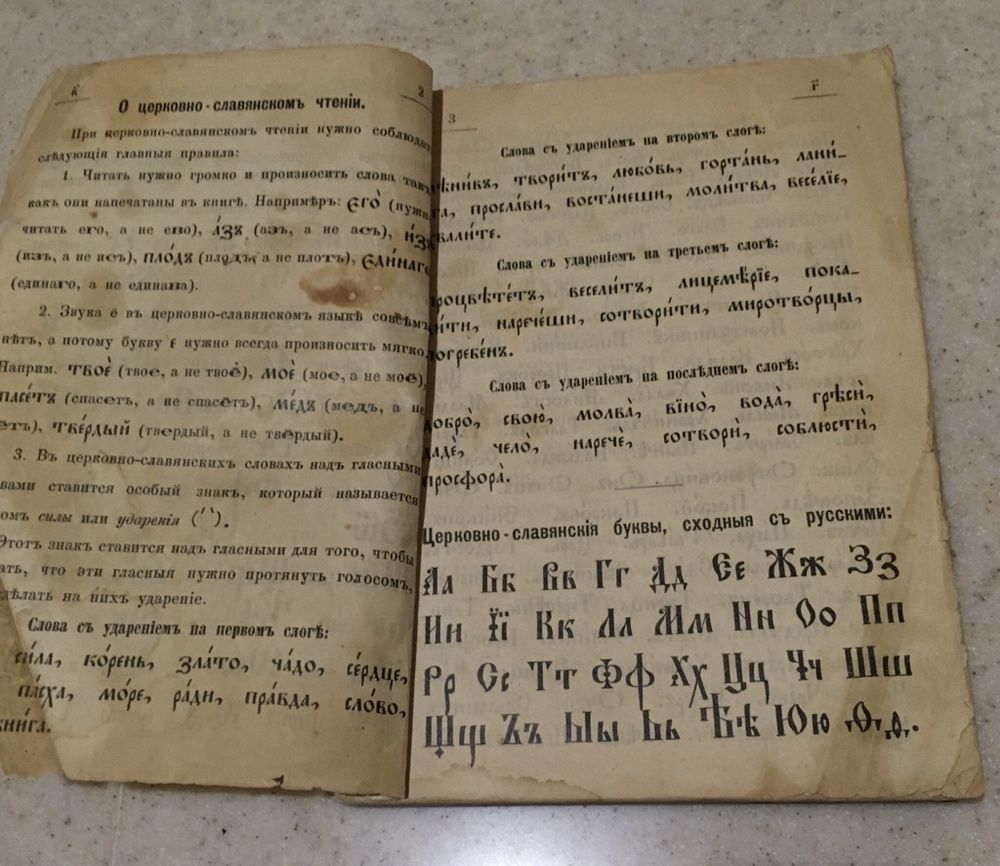 к҃ 2
О церковно-славянскомъ чтенiи.
При церковно-славянскомъ чтенiи нужно соблюдат
слѣдующiя главныя правила:
1. Читать нужно громко и произносить слова так
какъ они напечатаны въ книгѣ. Напримѣръ: єгѡ̀ (нужн
читать его, а не ево), а́зъ (азъ, а не асъ), и҆зъ
(изъ, а не исъ), пло́дъ (плодъ, а не плотъ), є҆ди́наго
(единаго, а не единава).
2. Звука ё въ церковно-славянскомъ языкѣ совсѣмъ
нѣтъ, а потому букву є нужно всегда произносить мягко.
Наприм. твоѐ (твое, а не твоё), моѐ (мое, а не моё),
пасе́тъ (спасетъ, а не спасётъ), ме́дъ (медъ, а не
ётъ), тве́рдый (твердый, а не твёрдый).
3. Въ церковно-славянскихъ словахъ надъ гласными
вами ставится особый знакъ, который называется
омъ силы или ударенiя (́ ̀).
Этотъ знакъ ставится надъ гласными для того, чтобы
ать, что эти гласныя нужно протянуть голосомъ,
дѣлать на нихъ ударенiе.
Слова съ ударенiемъ на первомъ слогѣ:
си́ла, ко́рень, зла́то, ча́до, се́рдце,
па́сха, мо́ре, ра́ди, пра́вда, сло́во,
кни́га.
3 г҃
Слова съ ударенiемъ на второмъ слогѣ:
твори́тъ, любо́вь, горта́нь, лани-
просла́ви, воста́неши, моли́тва, весе́лїе,
хвали́те.
Слова съ ударенiемъ на третьемъ слогѣ:
процвѣте́тъ, весели́тъ, лицемѣ́рїе, пока-
наречѐши, сотвори́ти, миротво́рцы,
погребе́нъ.
Слова съ ударенiемъ на послѣднемъ слогѣ:
добро̀, свою̀, молва̀, вїно̀, вода̀, грѣсѝ,
дадѐ, чело̀, наречѐ, сотворѝ, соблюстѝ,
просфора̀.
Церковно-славянскiя буквы, сходныя съ русскими:
Аа Бб Вв Гг Дд Єе Жж Зз
Ии Її Кк Лл Мм Нн Оо Пп
Рр Сс Тт Фф Хх Цц Чч Шш
Щщ Ъъ Ыы Ьь Ѣѣ Юю Ѳ, ѳ.